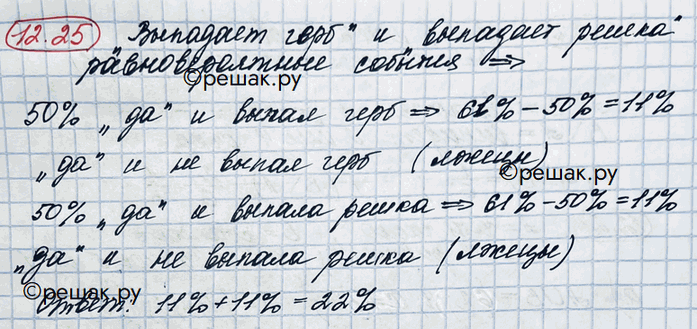 12.25 Выпадает герб" и выпадает решка"
равновероятные события ⇒
©решак.ру
50% „да" и выпал герб ⇒ 61% - 50% = 11%
„да" и не выпал герб (лжецы)
©решак.ру
50% „да" и выпала решка ⇒ 61% - 50% = 11%
„да" и не выпала решка (лжецы)
©решак.ру
Ответ: 11% + 11% = 22%